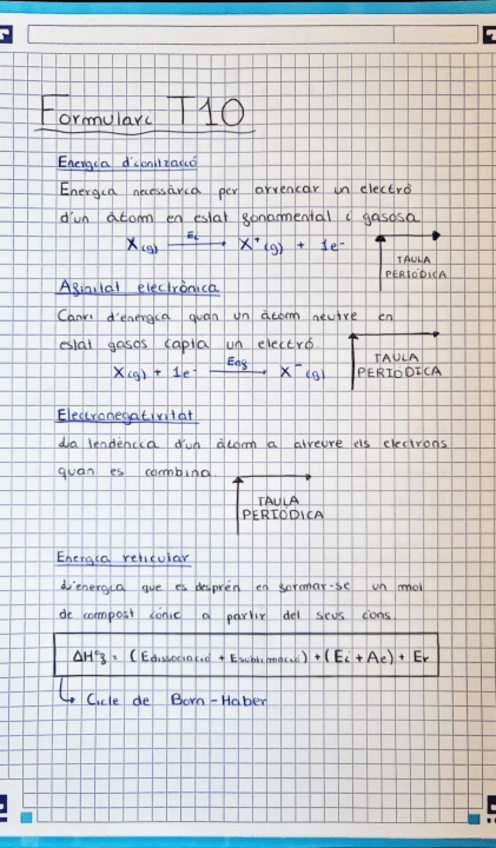 Formulari T10
Energia d'ionització
Energia necessària per arrencar un electró
d'un àtom en estat fonamental i gasosa
X(g) Ei X⁺(g) + 1e⁻
TAULA
PERIÒDICA
Afinitat electrònica
Canvi d'energia quan un àtom neutre en
estat gasos capta un electró.
TAULA
PERIÒDICA
X(g) + 1e⁻ Eaf X⁻(g)
Electronegativitat
La tendència d'un àtom a atreure els electrons
quan es combina.
TAULA
PERIÒDICA
Energia reticular
L'energia que es desprèn en formar-se un mol
de compost iònic a partir del seus ions.
ΔH°f = (Edissociació + Esublimació) + (Ei + Ae) + Er
↳ Cicle de Born-Haber